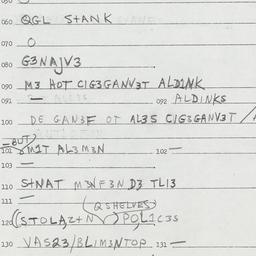 060 QGL S+ANK
070 O
080 G3NAJV3
090 M3 HOT CIG3GANV3T ALD1NK
091 — 092 ALDINKS
100 DE GAN3F OT AL3S CIG3GANV3T /
—BUT)
101 M1T AL3M3N 102 —
103 —
110 S+NAT M3NF3N D3 TLI3
111 — (2SHELVES)
120 (STOLAZ+N ) POL1C3S
130 VAS23/BLIM3NTOP 131 —